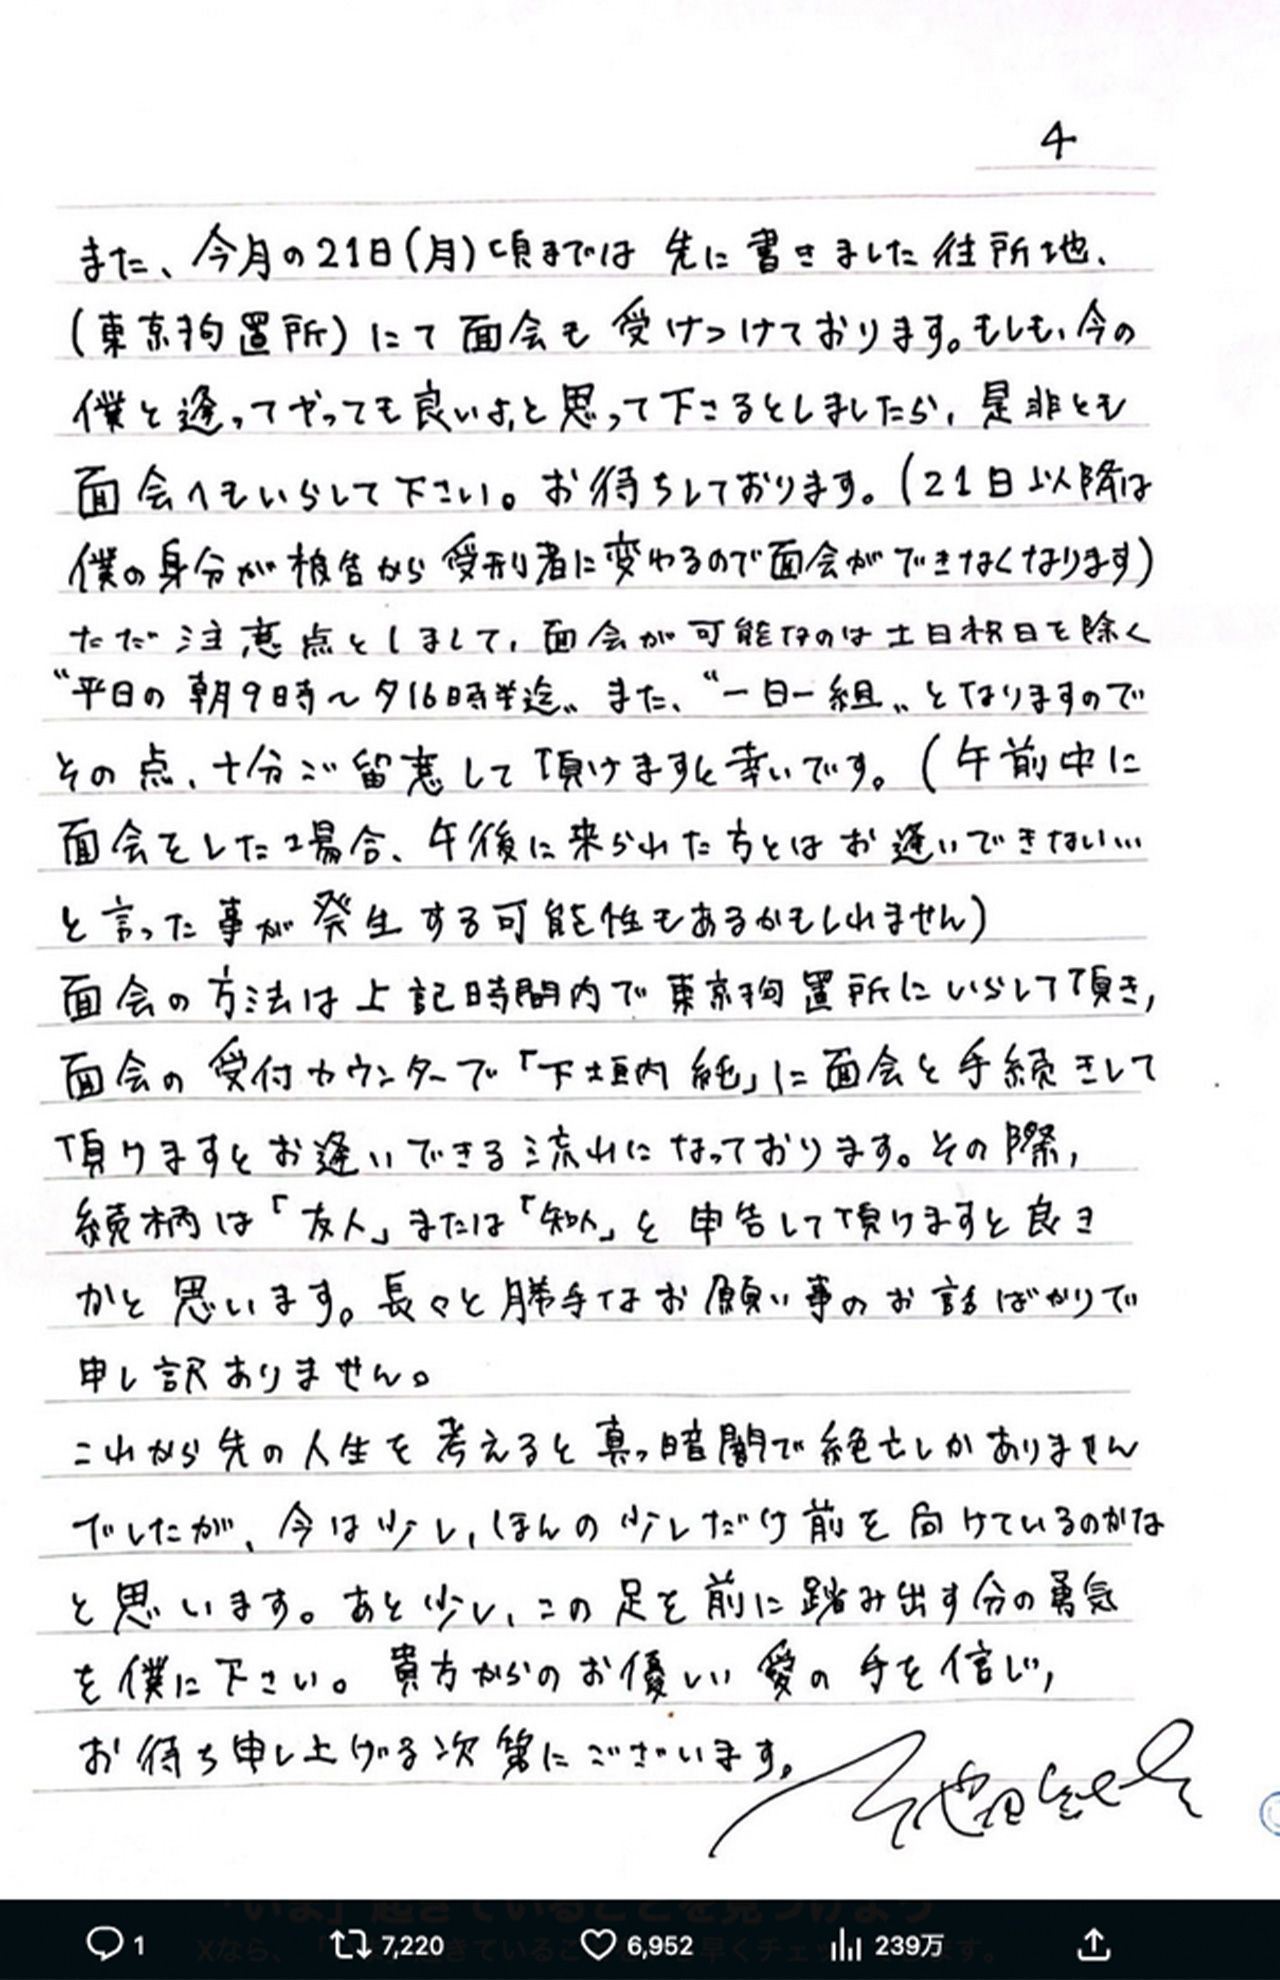 4
また、今月の21日(月)頃までは 先に書きました住所地、
(東京拘置所)にて面会も受けつけております。もしも、今の
僕と逢ってやっても良いよ、と思って下さるとしましたら、是非とも
面会へもいらして下さい。お待ちしております。(21日以降は
僕の身分が被告から受刑者に変わるので面会ができなくなります)
ただ注意点としまして、面会が可能なのは土日祝日を除く
〝平日の朝9時〜夕16時半迄〟また、〝一日一組〟となりますので
その点、十分ご留意して頂けますと幸いです。(午前中に
面会をした場合、午後に来られた方とはお逢いできない…
と言った事が発生する可能性もあるかもしれません)
面会の方法は上記時間内で東京拘置所にいらして頂き、
面会の受付カウンターで「下垣内 純」に面会と手続きして
頂けますとお逢いできる流れになっております。その際、
続柄は「友人」または「知人」と申告して頂けますと良き
かと思います。長々と勝手なお願い事のお話ばかりで
申し訳ありません。
これから先の人生を考えると真っ暗闇で絶望しかありません
でしたが、今は少し、ほんの少しだけ前を向けているのかな
と思います。あと少し、この足を前に踏み出す分の勇気
を僕に下さい。貴方からのお優しい愛の手を信じ、
お待ち申し上げる次第にございます。
1 7,220 6,952 239万